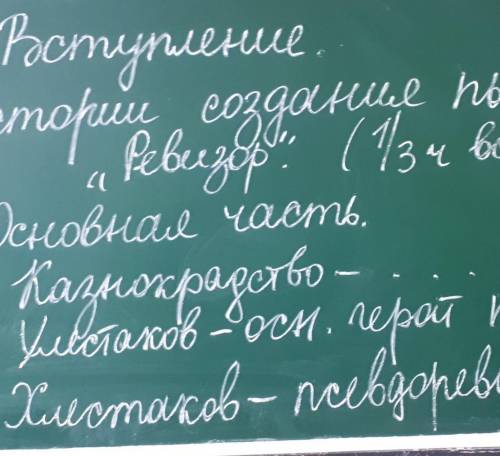 Вступление.
стории создания пь
"Ревизор". (1/3 ч вс
Основная часть.
Казнокрадство – . . . .
Хлестаков – осн. герой п
Хлестаков – псевдореви